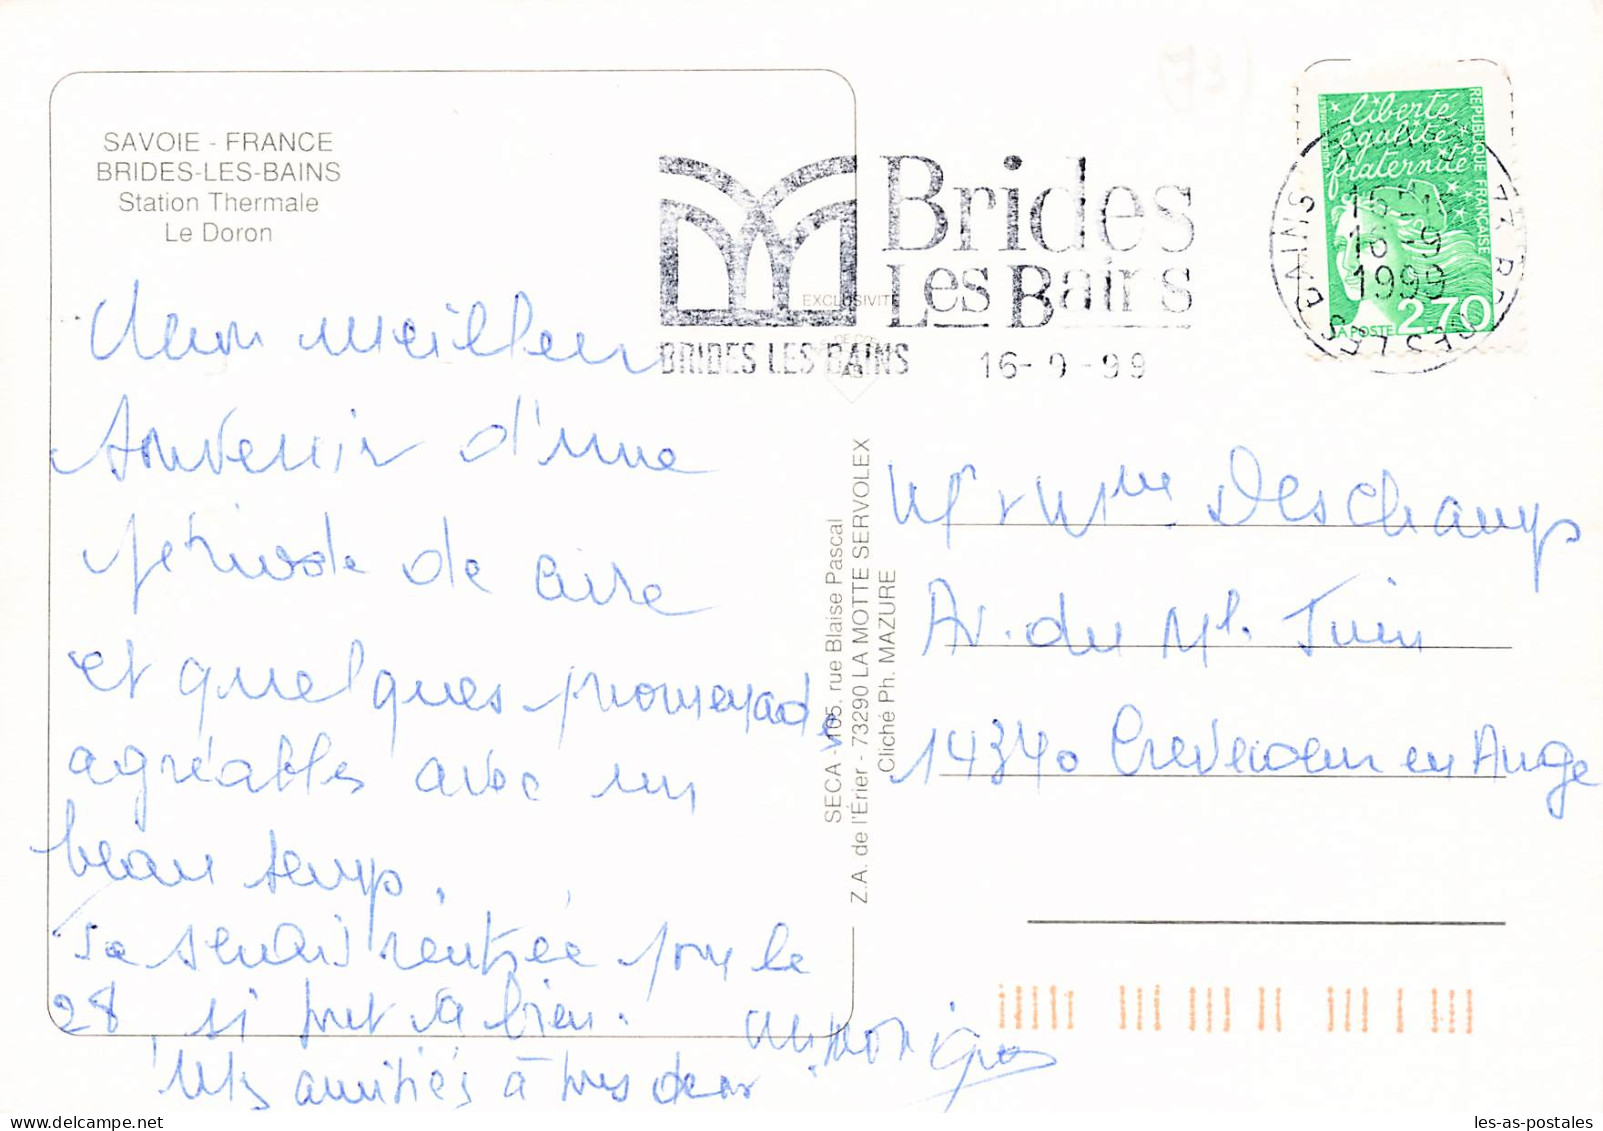 SAVOIE - FRANCE
BRIDES-LES-BAINS
Station Thermale
Le Doron
Mon meilleur
souvenir d'une
période de cure
et quelques promenades
agréables avec un
beau temps.
Je serais rentrée pour le
28 si tout va bien.
Mes amitiés à tous deux
EXCLUSIVITÉ
SECA 105, rue Blaise Pascal
Z.A. de l'Érier - 73290 LA MOTTE SERVOLEX
Cliché Ph. MAZURE
Brides
Les Bains
BRIDES LES BAINS 16-9-99
liberté
égalité
fraternité
REPUBLIQUE FRANÇAISE
LA POSTE 2,70
BRIDES LES BAINS
16
1999
Mr & Mme Deschamps
Av. du Ml. Juin
14340 Crevecoeur en Auge
les-as-postales